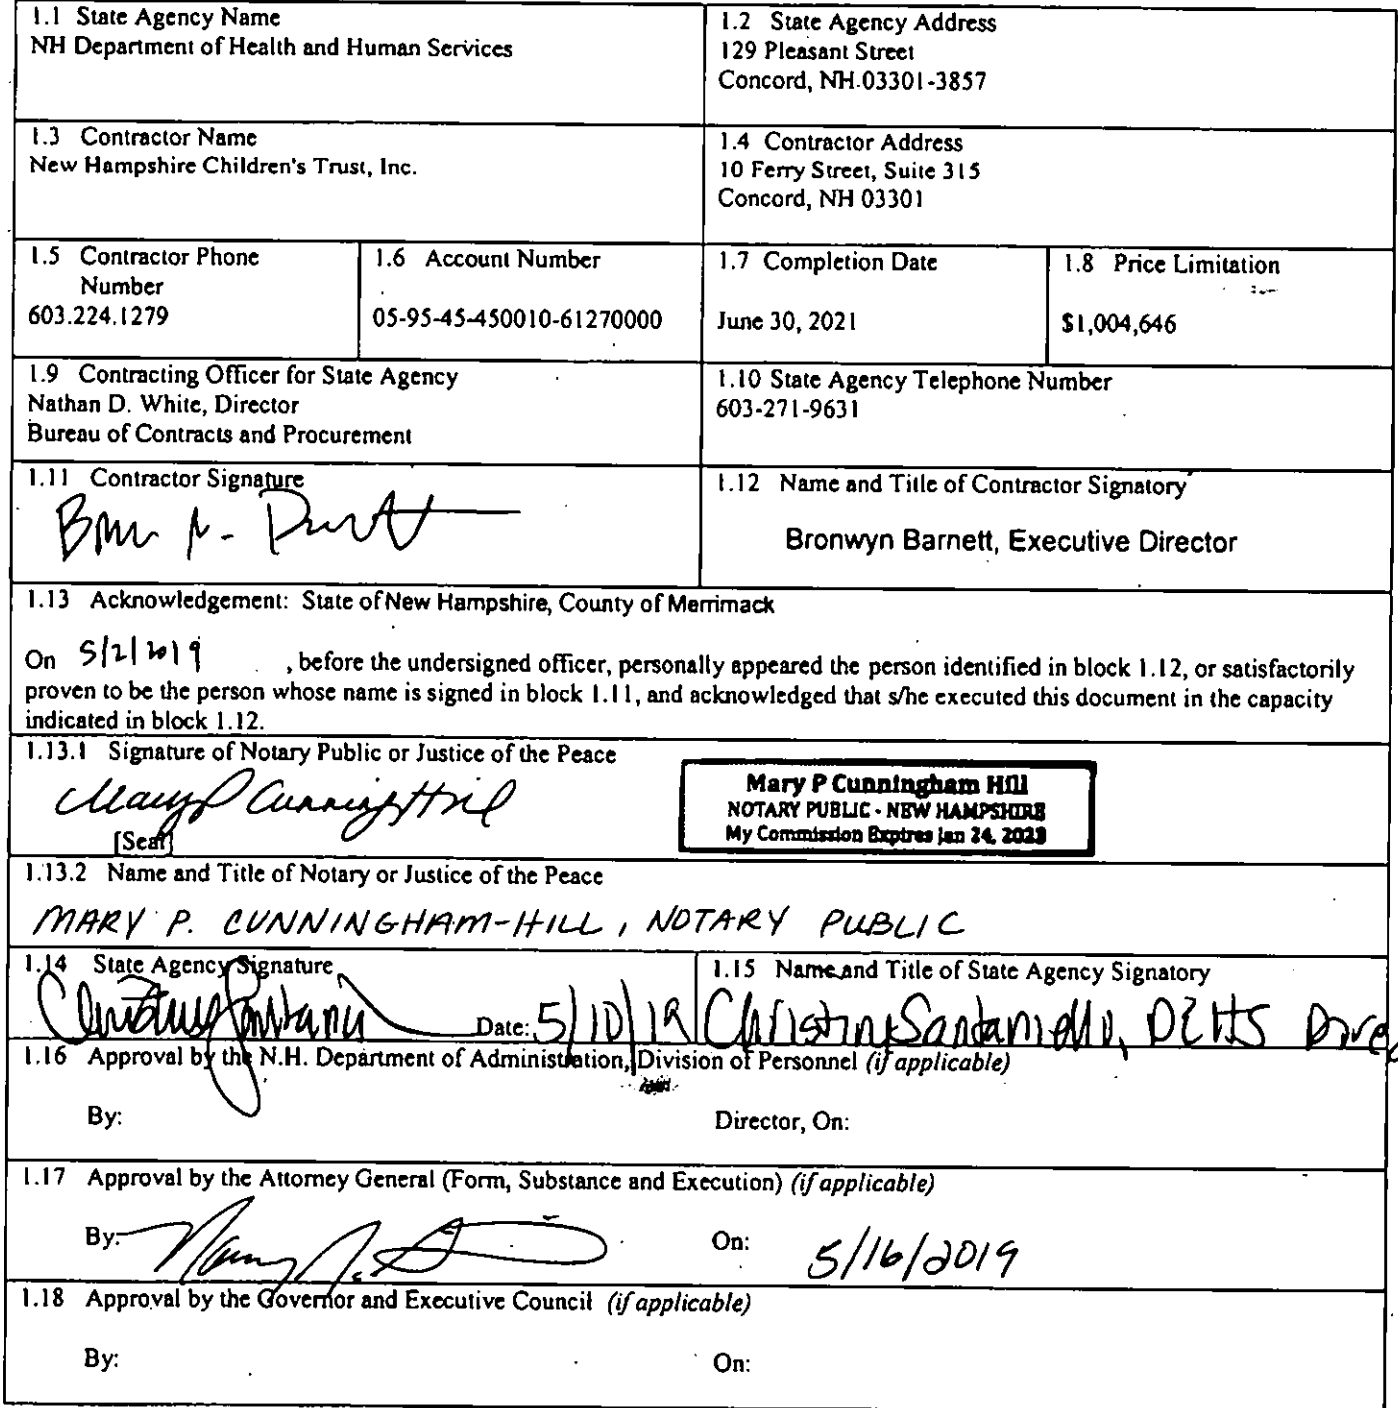 1.1 State Agency Name
NH Department of Health and Human Services
1.2 State Agency Address
129 Pleasant Street
Concord, NH 03301-3857
1.3 Contractor Name
New Hampshire Children's Trust, Inc.
1.4 Contractor Address
10 Ferry Street, Suite 315
Concord, NH 03301
1.5 Contractor Phone
Number
603.224.1279
1.6 Account Number
05-95-45-450010-61270000
1.7 Completion Date
June 30, 2021
1.8 Price Limitation
$1,004,646
1.9 Contracting Officer for State Agency
Nathan D. White, Director
Bureau of Contracts and Procurement
1.10 State Agency Telephone Number
603-271-9631
1.11 Contractor Signature
1.12 Name and Title of Contractor Signatory
Bronwyn Barnett, Executive Director
1.13 Acknowledgement: State of New Hampshire, County of Merrimack
On 5/2/2019 , before the undersigned officer, personally appeared the person identified in block 1.12, or satisfactorily
proven to be the person whose name is signed in block 1.11, and acknowledged that s/he executed this document in the capacity
indicated in block 1.12.
1.13.1 Signature of Notary Public or Justice of the Peace
Mary P Cunningham Hill
[Seal]
Mary P Cunningham Hill
NOTARY PUBLIC - NEW HAMPSHIRE
My Commission Expires Jan 24, 2023
1.13.2 Name and Title of Notary or Justice of the Peace
MARY P. CUNNINGHAM-HILL, NOTARY PUBLIC
1.14 State Agency Signature
Date: 5/10/19
1.15 Name and Title of State Agency Signatory
Christine Santaniello, DEHS Direc
1.16 Approval by the N.H. Department of Administration, Division of Personnel (if applicable)
By:
Director, On:
1.17 Approval by the Attorney General (Form, Substance and Execution) (if applicable)
By:
On: 5/16/2019
1.18 Approval by the Governor and Executive Council (if applicable)
By:
On: